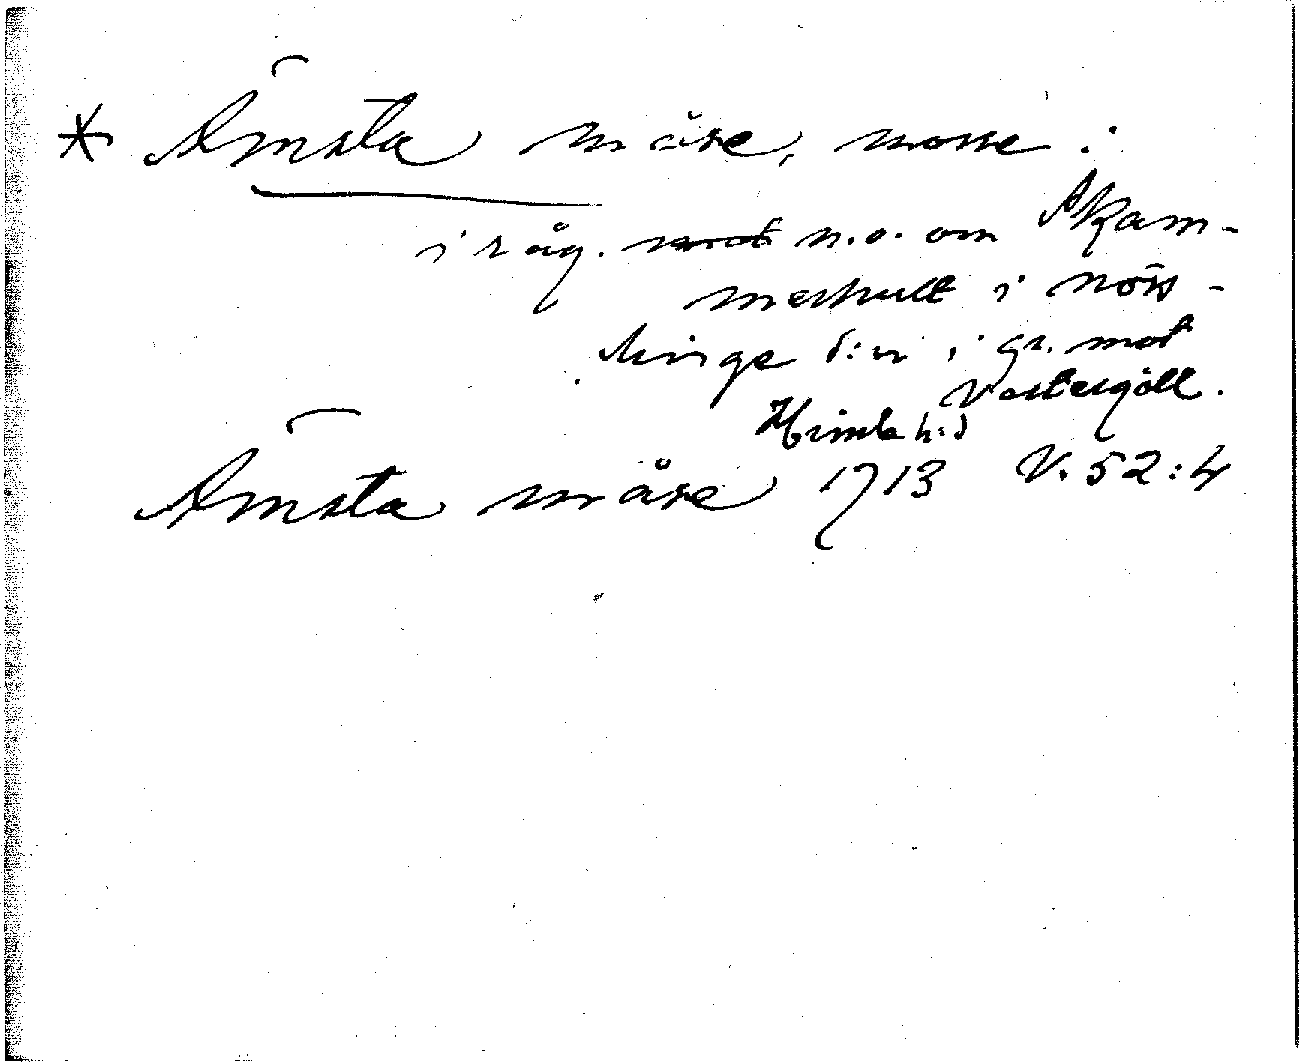 * Ämsta måse, mosse:
i råg. mot n.o. om Skam-
merhult i Nöss-
linge s:n i gr. mot
Västergötl.
Himle h:d
Ämsta måse 1713 V. 52:4